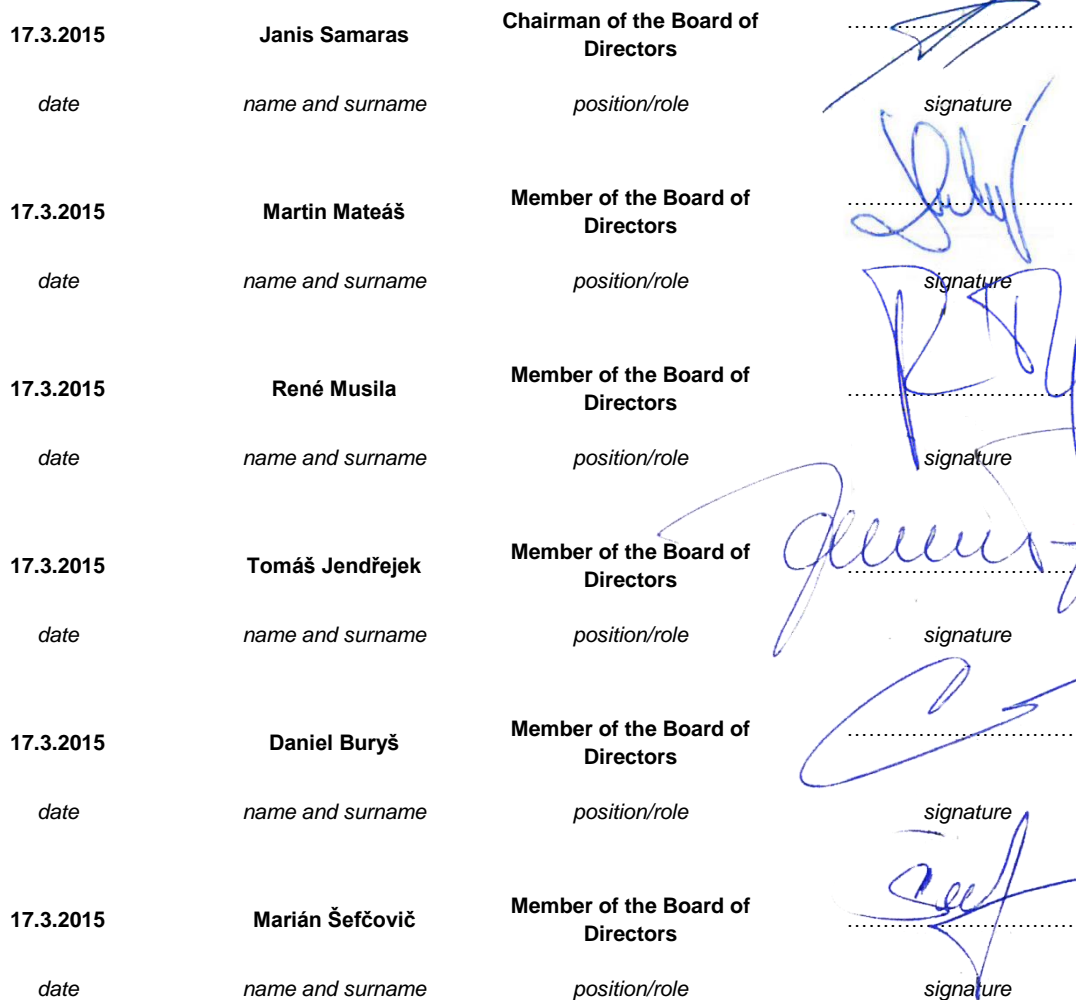 17.3.2015 Janis Samaras Chairman of the Board of
Directors
date name and surname position/role signature
17.3.2015 Martin Mateáš Member of the Board of
Directors
date name and surname position/role signature
17.3.2015 René Musila Member of the Board of
Directors
date name and surname position/role signature
17.3.2015 Tomáš Jendřejek Member of the Board of
Directors
date name and surname position/role signature
17.3.2015 Daniel Buryš Member of the Board of
Directors
date name and surname position/role signature
17.3.2015 Marián Šefčovič Member of the Board of
Directors
date name and surname position/role signature